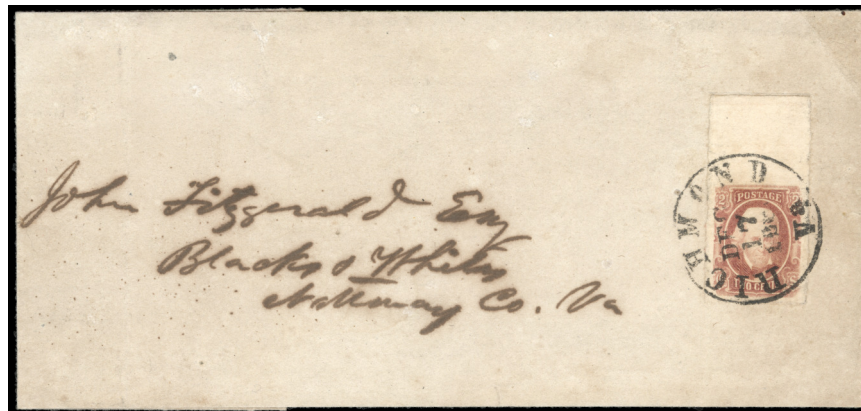 John Fitzgerald Esq
Blacks & Whites
Nottoway Co. Va
RICHMOND VA
DEC
17
2 POSTAGE 2
TWO CENTS